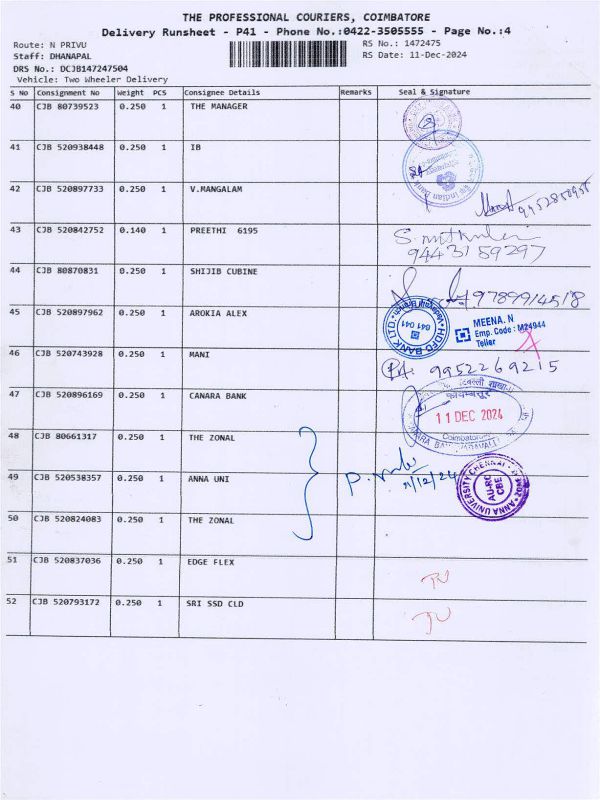 THE PROFESSIONAL COURIERS, COIMBATORE
Delivery Runsheet - P41 - Phone No.:0422-3505555 - Page No.:4
Route: N PRIVU
RS No.: 1472475
Staff: DHANAPAL
RS Date: 11-Dec-2024
DRS No.: DCJB147247504
Vehicle: Two Wheeler Delivery
S No Consignment No Weight PCS Consignee Details Remarks Seal & Signature
40 CJB 80739523 0.250 1 THE MANAGER
41 CJB 520938448 0.250 1 IB
Indian Bank
42 CJB 520897733 0.250 1 V.MANGALAM
43 CJB 520842752 0.140 1 PREETHI 6195
9443159297
44 CJB 80870831 0.250 1 SHIJIB CUBINE
9789914518
45 CJB 520897962 0.250 1 AROKIA ALEX
HDFC BANK LTD.
641 041
MEENA. N
Emp. Code : M24944
Teller
46 CJB 520743928 0.250 1 MANI
9952269215
47 CJB 520896169 0.250 1 CANARA BANK
11 DEC 2024
Coimbatore
48 CJB 80661317 0.250 1 THE ZONAL
49 CJB 520538357 0.250 1 ANNA UNI
11/12/24
ANNA UNIVERSITY CHENNAI
AU-RO
CBE
50 CJB 520824083 0.250 1 THE ZONAL
51 CJB 520837036 0.250 1 EDGE FLEX
52 CJB 520793172 0.250 1 SRI SSD CLD